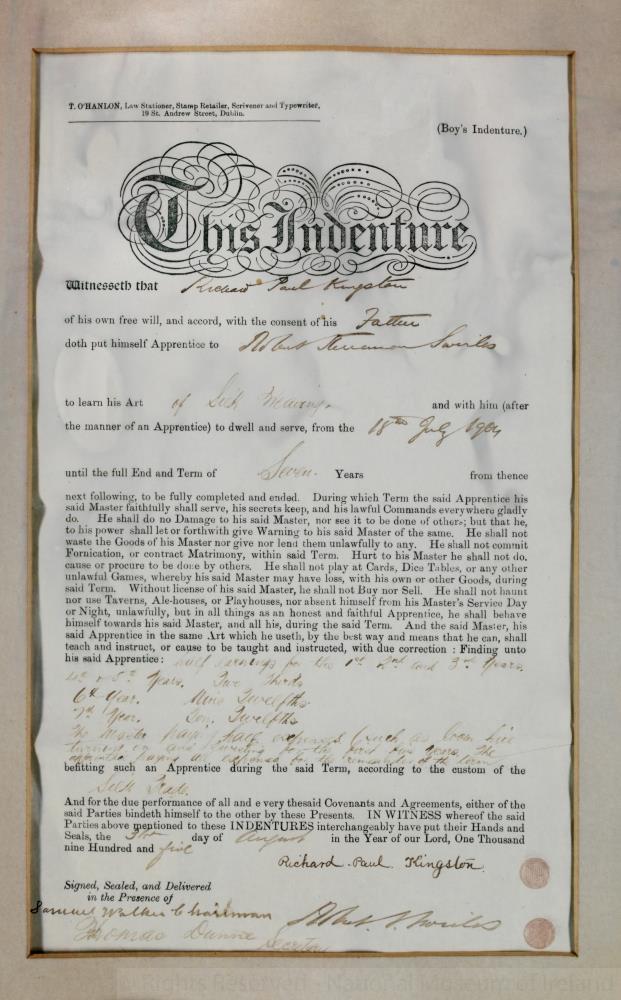 T. O'HANLON, Law Stationer, Stamp Retailer, Scrivener and Typewriter,
19 St. Andrew Street, Dublin.
(Boy's Indenture.)
This Indenture
Witnesseth that Richard Paul Kingston
of his own free will, and accord, with the consent of his Father
doth put himself Apprentice to Robert Swirles
to learn his Art of Silk Weaving and with him (after
the manner of an Apprentice) to dwell and serve, from the 18th July 1904
until the full End and Term of Seven Years from thence
next following, to be fully completed and ended. During which Term the said Apprentice his
said Master faithfully shall serve, his secrets keep, and his lawful Commands everywhere gladly
do. He shall do no Damage to his said Master, nor see it to be done of others; but that he,
to his power shall let or forthwith give Warning to his said Master of the same. He shall not
waste the Goods of his Master nor give nor lend them unlawfully to any. He shall not commit
Fornication, or contract Matrimony, within said Term. Hurt to his Master he shall not do,
cause or procure to be done by others. He shall not play at Cards, Dice Tables, or any other
unlawful Games, whereby his said Master may have loss, with his own or other Goods, during
said Term. Without license of his said Master, he shall not Buy nor Sell. He shall not haunt
nor use Taverns, Ale-houses, or Playhouses, nor absent himself from his Master's Service Day
or Night, unlawfully, but in all things as an honest and faithful Apprentice, he shall behave
himself towards his said Master, and all his, during the said Term. And the said Master, his
said Apprentice in the same Art which he useth, by the best way and means that he can, shall
teach and instruct, or cause to be taught and instructed, with due correction : Finding unto
his said Apprentice: half earnings for the 1st 2nd and 3rd Years.
4th & 5th Years. Two Thirds
6th Year. Nine Twelfths
7th Year. Ten Twelfths
The Master paying half expenses (such as loom hire
turning on and for the first five Years, the
apprentice paying all expenses for the remainder of the term
befitting such an Apprentice during the said Term, according to the custom of the
Silk Trade.
And for the due performance of all and e very thesaid Covenants and Agreements, either of the
said Parties bindeth himself to the other by these Presents. IN WITNESS whereof the said
Parties above mentioned to these INDENTURES interchangeably have put their Hands and
Seals, the day of August in the Year of our Lord, One Thousand
nine Hundred and five
Richard Paul Kingston.
Signed, Sealed, and Delivered
in the Presence of
Samuel Walker Chairman
Robt. Swirles
Thomas Dunne Secretary
© Rights Reserved - National Museum of Ireland